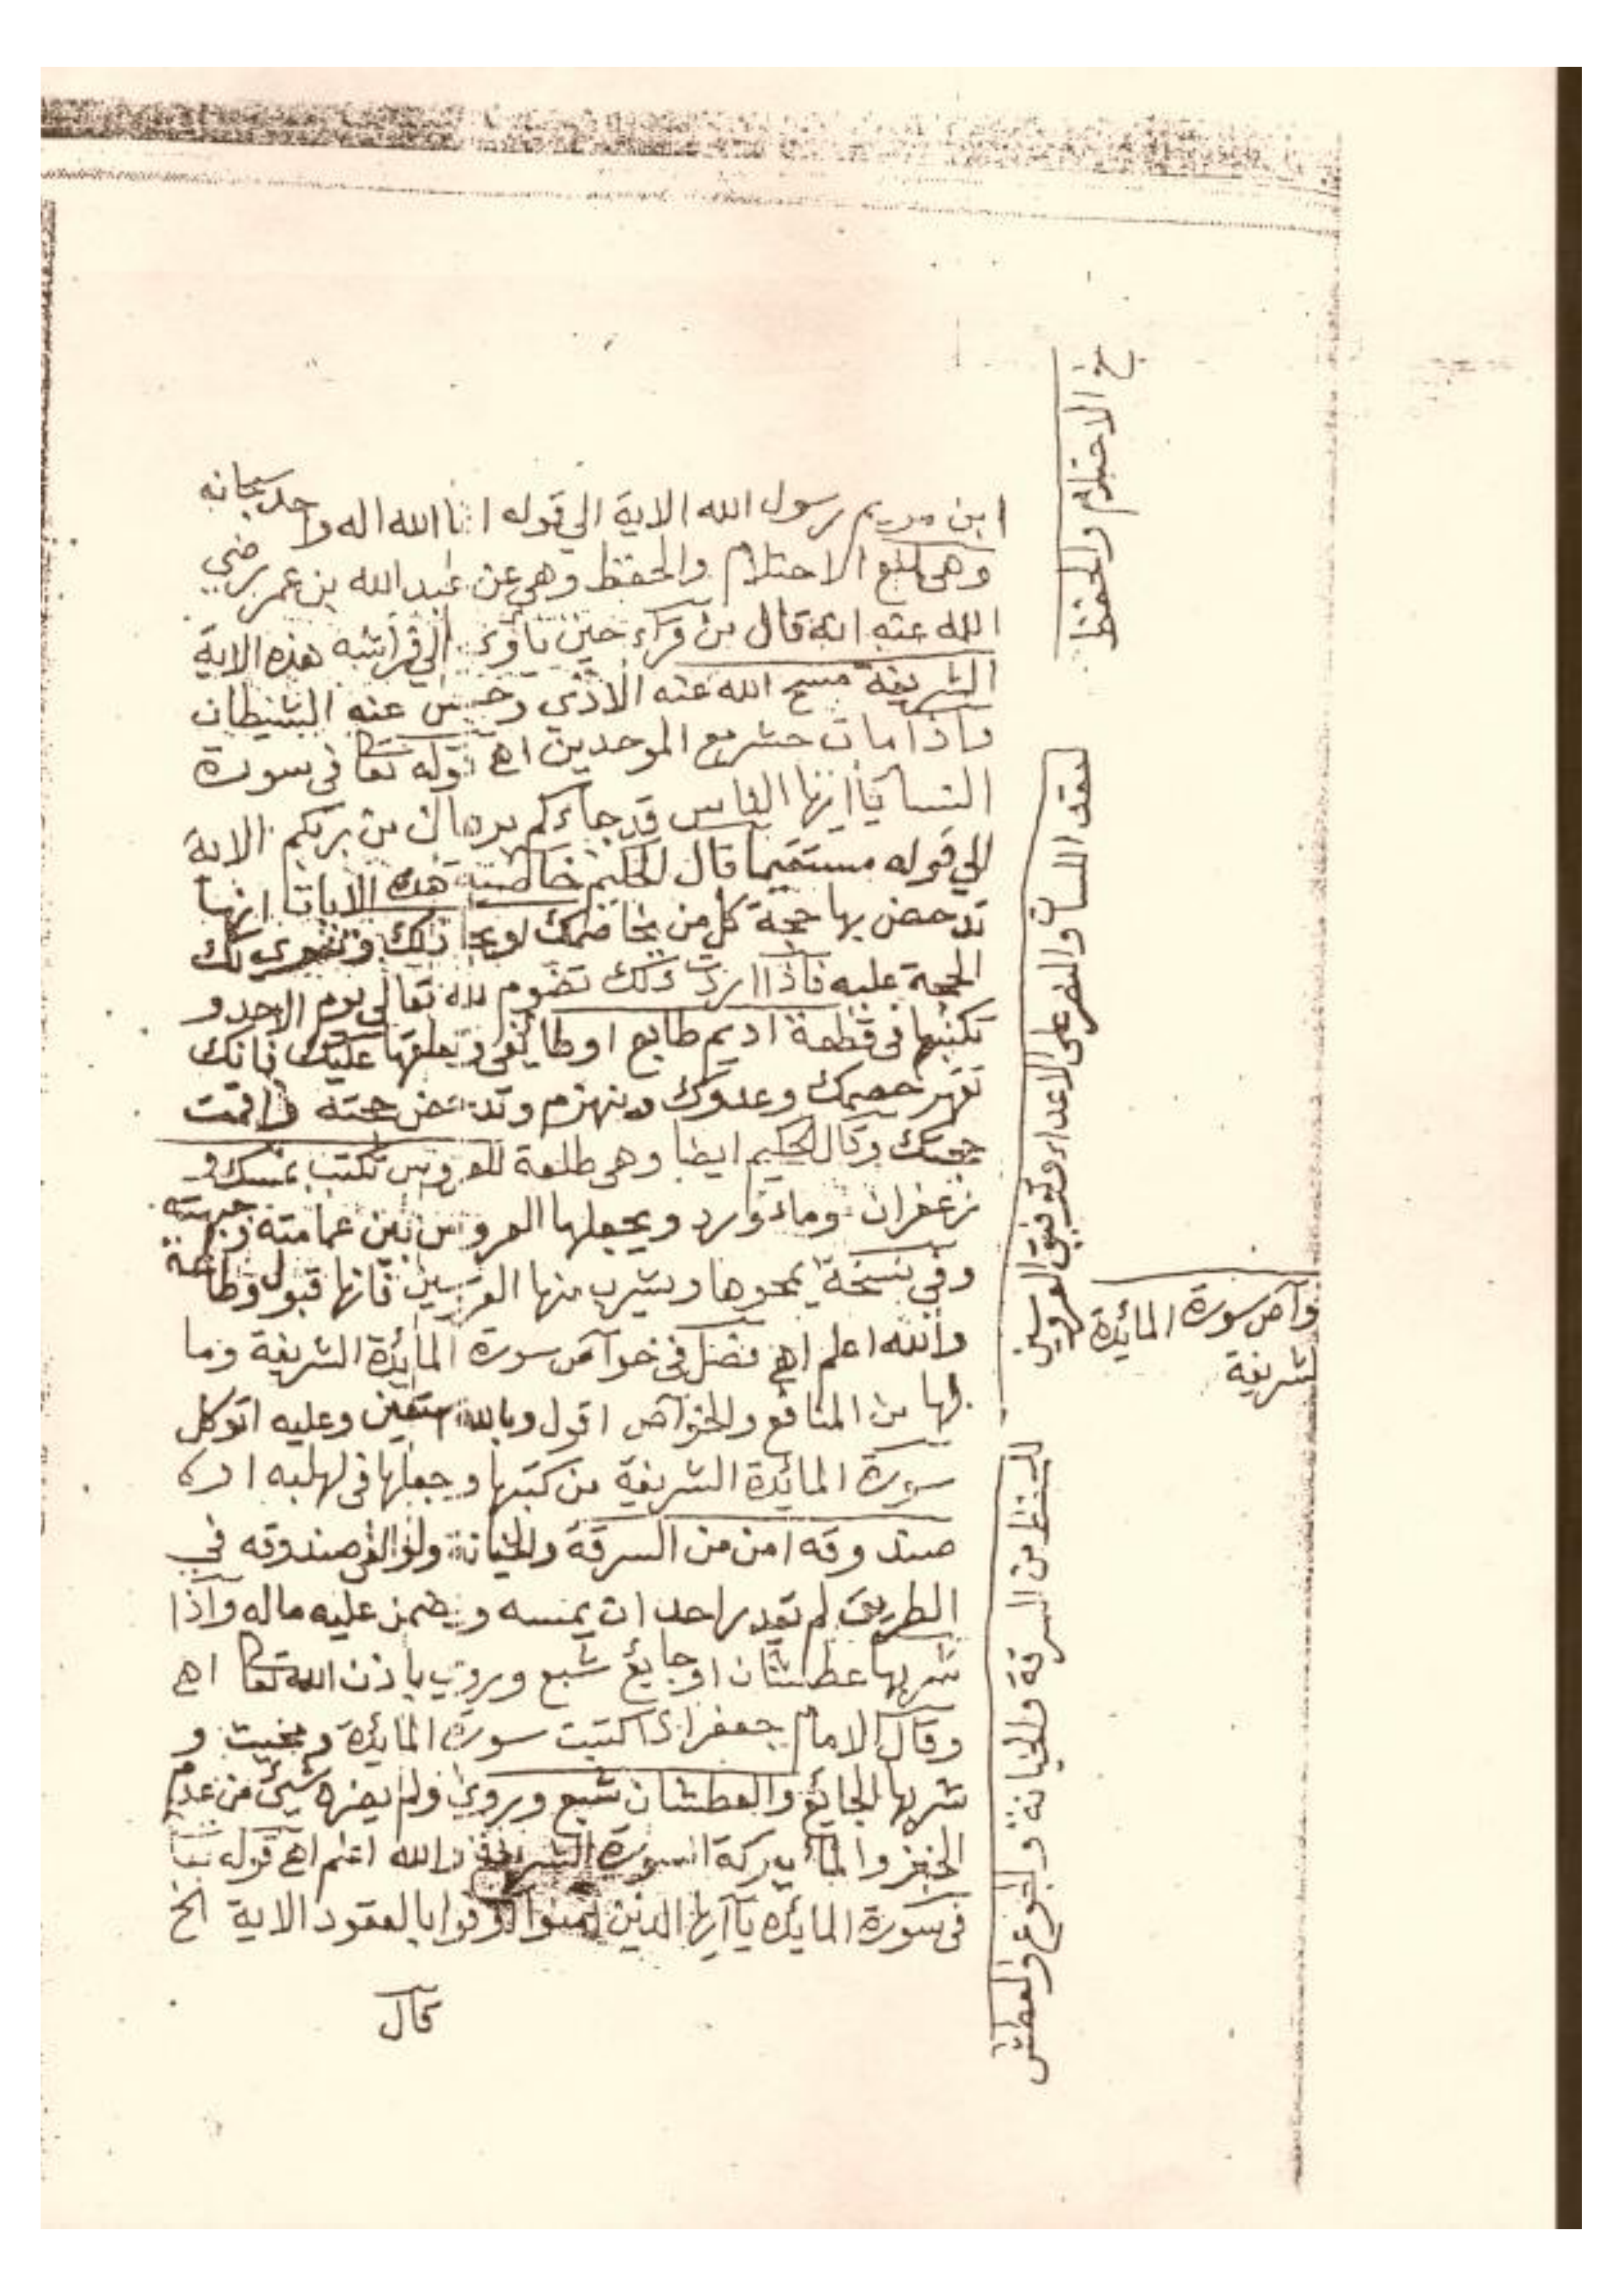 ابن مريم رسول الله الاية الي قوله انما الله اله واحد سبحانه
وهي لمنع الاحتلام والحفظ وهي عن عبد الله بن عمر رضي
الله عنه انه قال من قرأ حين ياوي الي فراشه هذه الاية
الشريفة مسح الله عنه الاذي وحبس عنه الشيطان
واذا مات حشر مع الموحدين اهـ قوله تعا في سورة
النسا يا ايها الناس قد جاءكم برهان من ربكم الاية
الي قوله مستقيما قال الحكيم خاصية هذه الايات انها
تدحض بها حجة كل من يخاصمك او يجادلك وتقوي لك
الحجة عليه فاذا اردت ذلك تصوم لله تعالى يوم الاحد و
تكتبها في قطعة اديم طايع او طايفي وتعلقها عليك فانك
تقهر خصمك وعدوك وينهزم وتدحض حجته واقمت
حجتك وقال الحكيم ايضا وهي طلعة للعروس تكتب بمسك و
زعفران وماء ورد ويجعلها العروس بين عمامته وجبهته
وفي نسخة يمحوها ويشرب منها العريس فانها قبول وطاعة
والله اعلم اهـ فصل في خواص سورة المائدة الشريفة وما
فيها من المنافع والخواص اقول وبالله استعين وعليه اتوكل
سورة المائدة الشريفة من كتبها وجعلها في
صندوقه امن من السرقة والخيانة ولو القي صندوقه في
الطريق لم يقدر احد ان يمسه ويضمن عليه ماله واذا
شربها عطشان او جايع شبع وروي باذن الله تعا اهـ
وقال الامام جعفر اذا كتبت سورة المائدة ومحيت و
شربها الجائع والعطشان شبع وروي ولم يضره شيئ من عدم
الخبز والماء ببركة السورة الشريفة والله اعلم اهـ قوله تعا
في سورة المائدة يا ايها الذين امنوا اوفوا بالعقود الاية الخ
قال
الاحتلام والحفظ
لعقد اللسان والنصر على الاعداء وتوفيق العروسين
واص سورة المائدة
شريفة
للحفظ من السرقة والخيانة والجوع والعطش